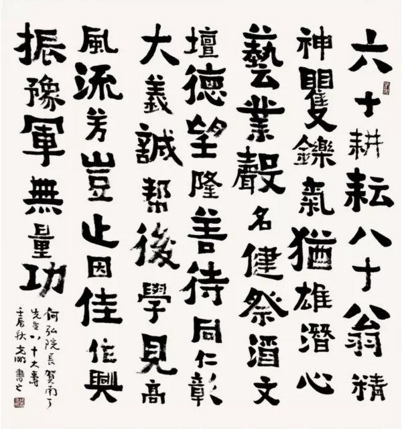 六十耕耘八十翁精
神矍鑠氣猶雄潛心
藝業聲名健祭酒文
壇德望隆善待同仁彰
大義誠幫後學見高
風流芳豈止因佳作興
振豫軍無量功
何弘院長賀南丁
先生八十大壽
壬辰秋書之